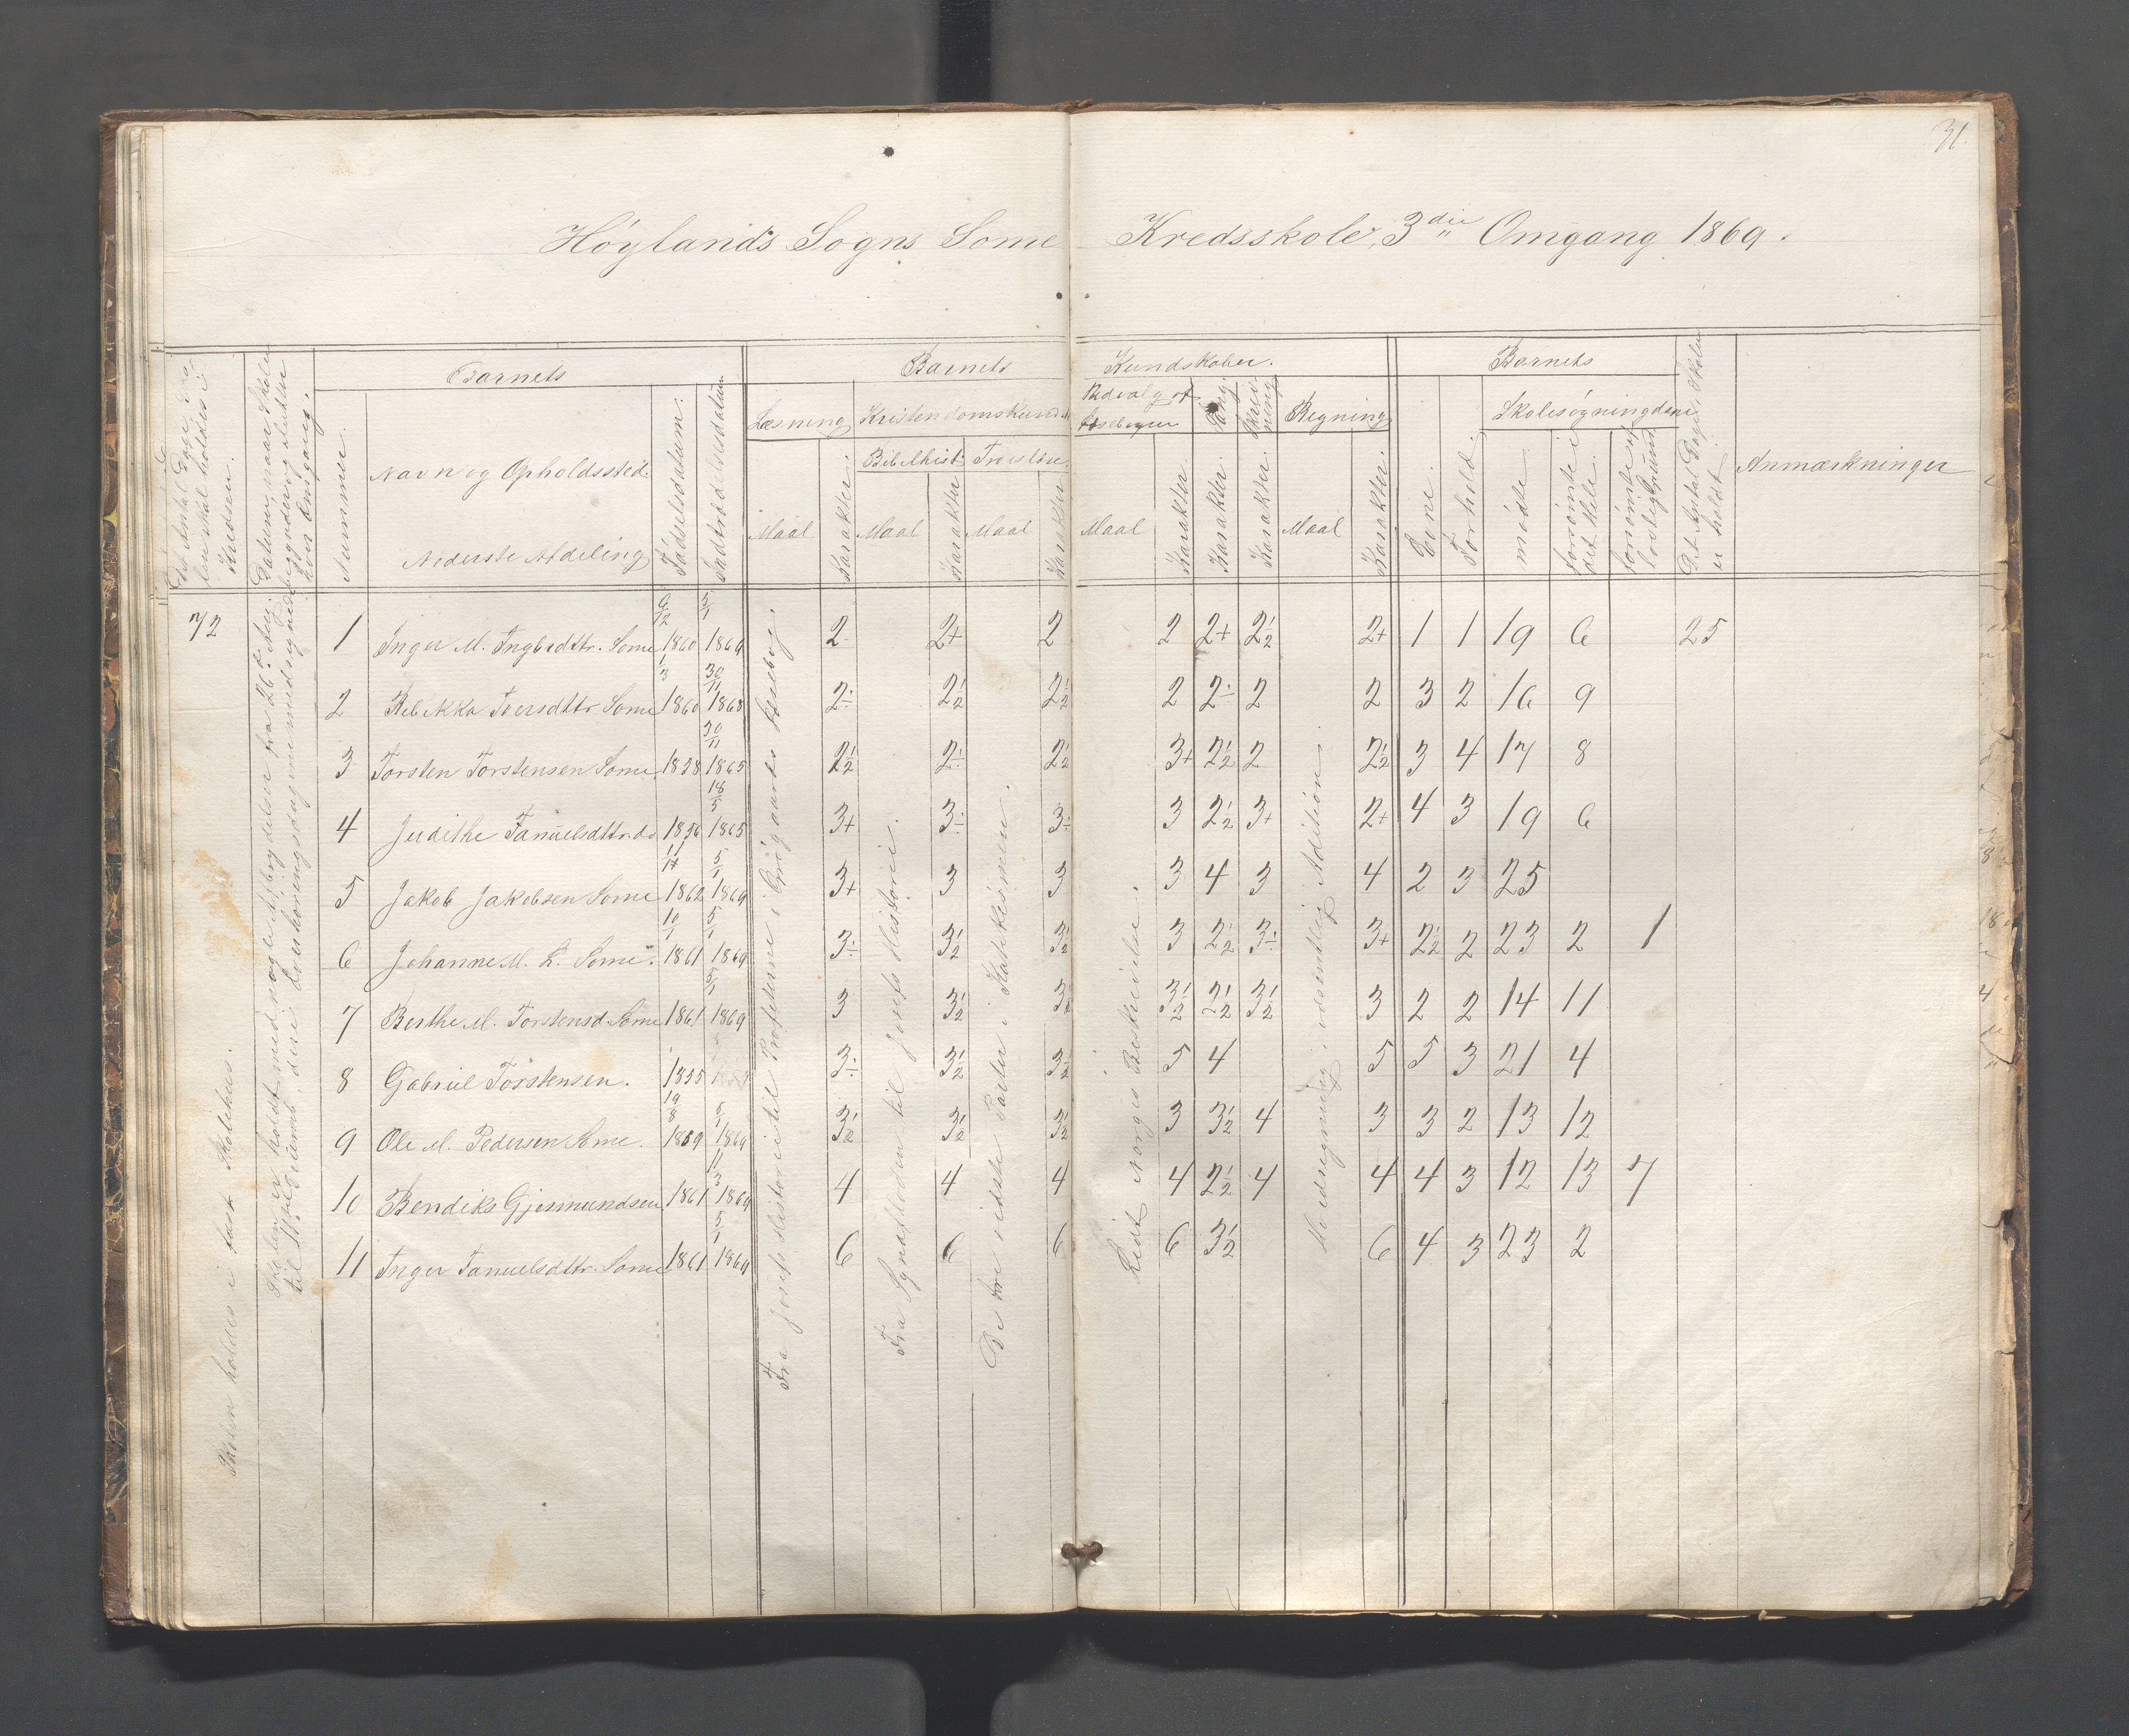 31.
Høylands Sogns Some Kredsskole, 3die Omgang 1869.
Barnets
Barnets Kundskaber.
Barnets
Det Antal Dage, Skolen skal holdes i Kredsen.
Nummer.
Navn og Opholdssted.
Nederste Afdeling
Fødselsdatum.
Indtrædelsesdatum
Læsning
Kristendomskundsk
Bibelhist.
Troeslære.
Udvalg af Læsebogen
Sang.
Skrivning
Regning
Maal
Karakter.
Maal
Karakter
Maal
Karakter
Maal
Karakter.
Karakter.
Karakter.
Maal
Karakter.
Evne.
Forhold.
Skolesøgningdage
mødte.
forsømte i det Hele.
forsømte af lovlig Grund
Det Antal Dage, Skolen er holdt.
Anmærkninger
72
Skolen holdes i fast Skolehus.
Fra Josefs Historie til Profeterne i Grøgaards Læsebog.
Fra Syndfloden til Josefs Historie.
De tre sidste Parter i Katekismen.
Lidt Norges Beskrivelse.
Hovedregning, væsentlig Adition.
1 Inger M. Ingbrdttr. Some 6/12 1860 5/1 1869 2 2+ 2 2 2+ 2½ 2+ 1 1 19 6 25
2 Rebekka Iversdttr Some 1/3 1860 30/11 1868 2÷ 2½ 2½ 2 2÷ 2 2 3 2 16 9
3 Torsten Torstensen Some. 1858 30/11 1865 2½ 2÷ 2½ 3+ 2½ 2 2½ 3 4 17 8
4 Judithe Tanuelsdttr. do 1856 18/5 1865 3+ 3÷ 3÷ 3 2½ 3+ 2+ 4 3 19 6
5 Jakob Jakobsen Some 1862 5/1 1869 3+ 3 3 3 4 3 4 2 3 25
6 Johanne M. L. Some. 10/1 1861 5/1 1869 3÷ 3½ 3½ 3 2½ 3÷ 3+ 2½ 2 23 2 1
7 Berthe M. Torstensd. Some 1861 5/1 1869 3 3½ 3½ 3½ 2½ 3½ 3 2 2 14 11
8 Gabriel Torstensen. 1855 3÷ 3½ 3½ 5 4 5 5 3 21 4
9 Ole M. Pedersen Some. 19/8 1859 5/1 1869 3½ 3½ 3½ 3 3½ 4 3 3 2 13 12
10 Bendiks Gjesmundsen 1861 1/3 1869 4 4 4 4 2½ 4 4 4 3 12 13 7
11 Inger Tanuelsdttr. Some 1861 5/1 1869 6 6 6 6 3½ 6 4 3 23 2